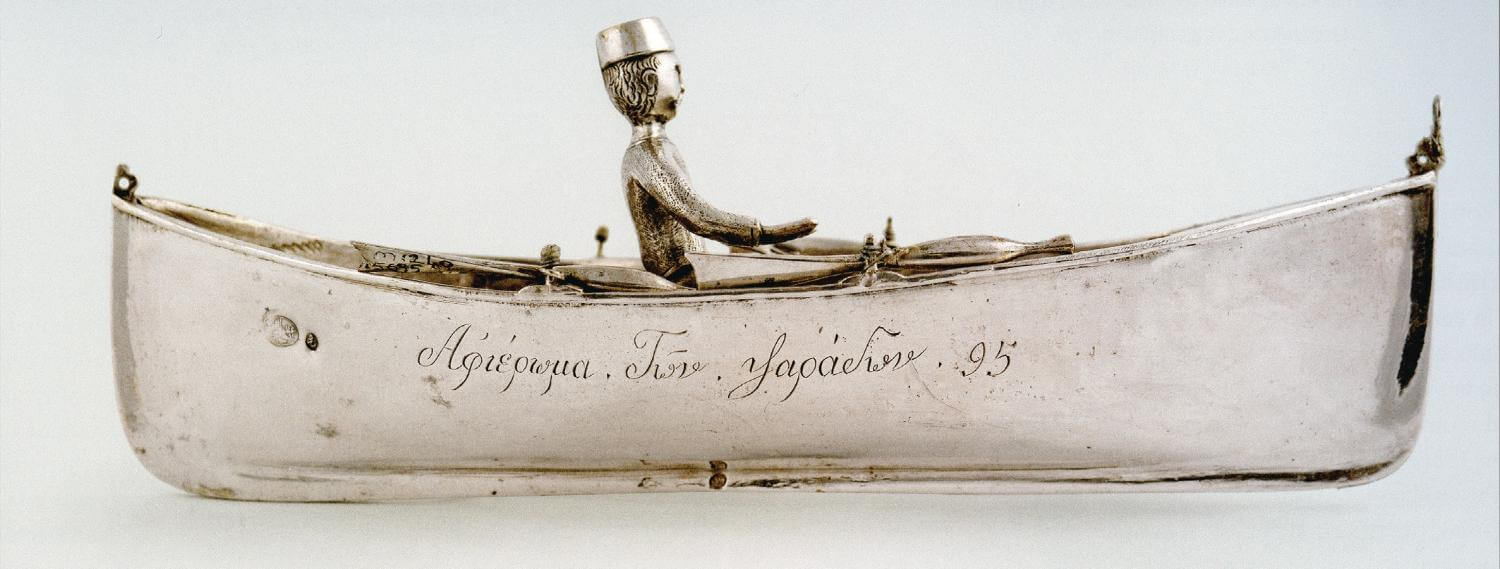 Ἀφιέρωμα . Τῶν . ψαράδων . 95